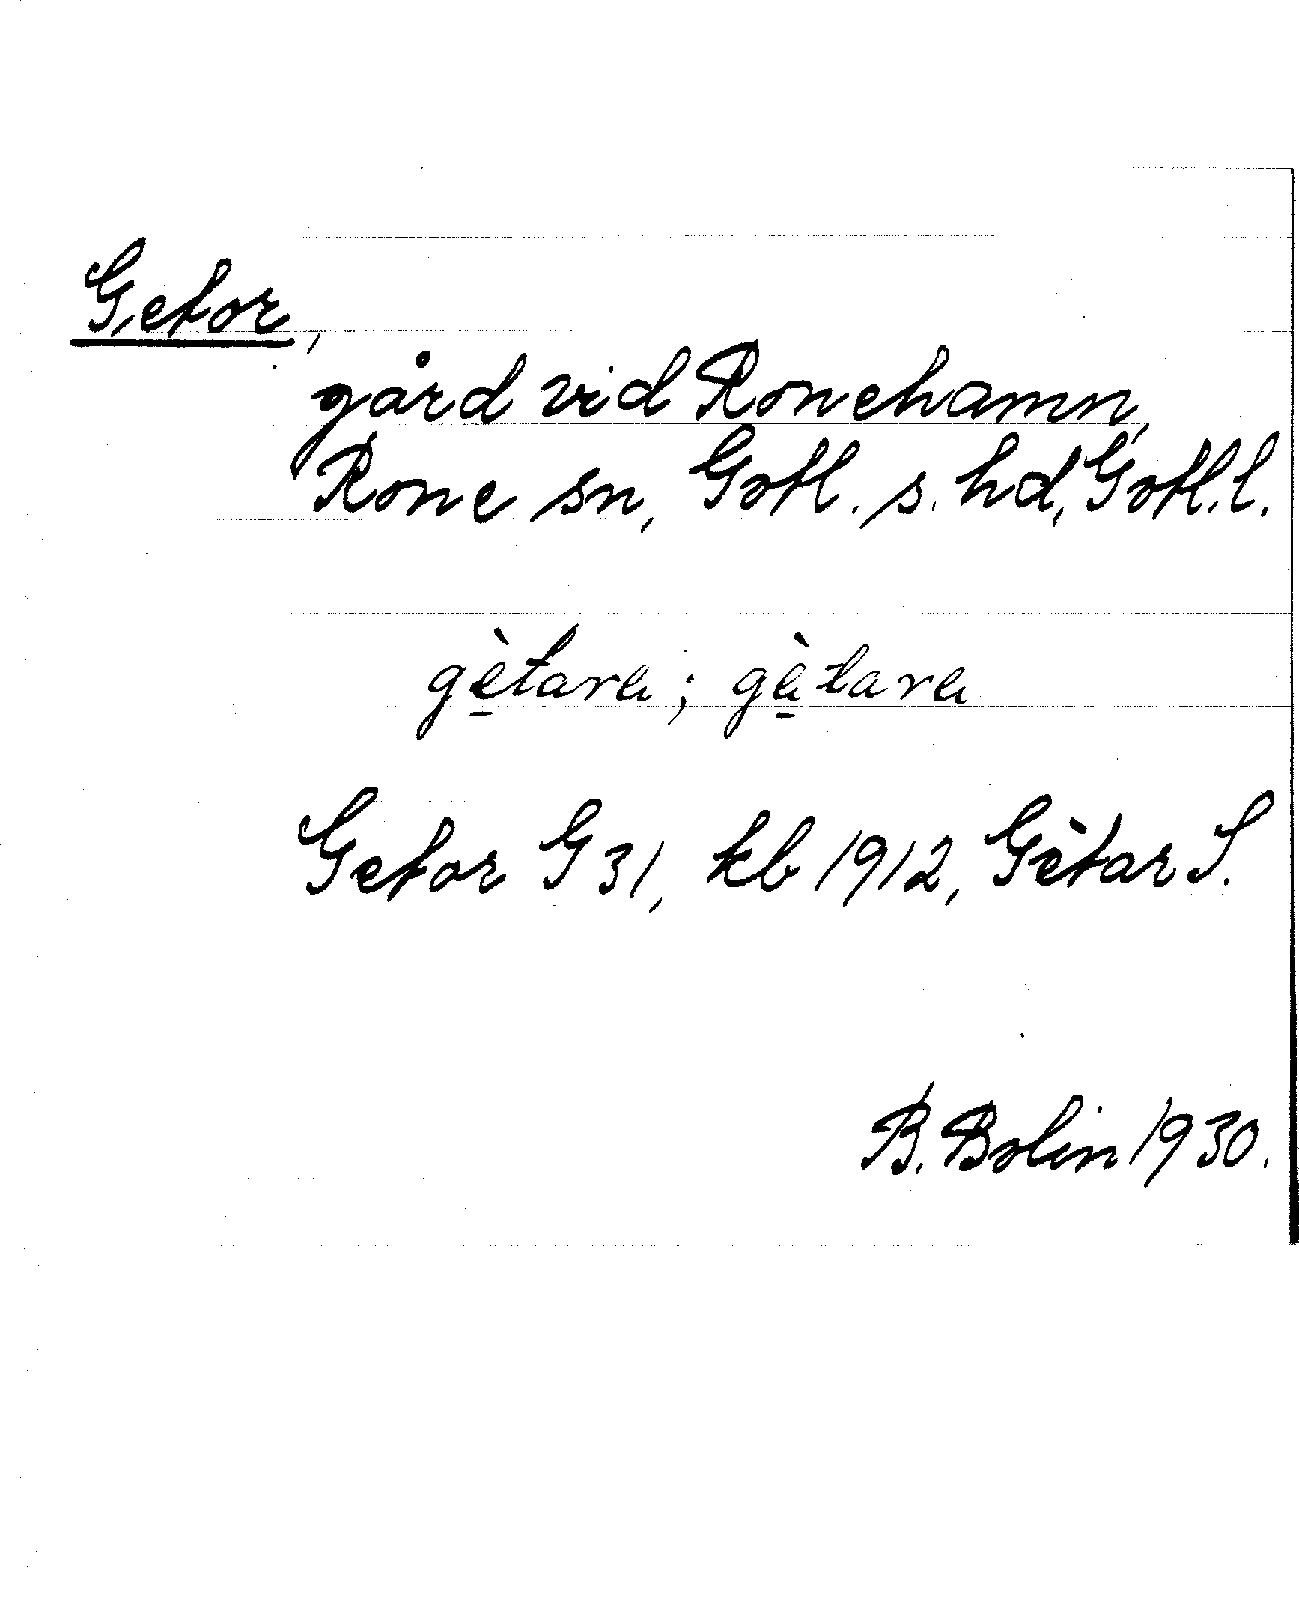 Getor,
gård vid Ronehamn,
Rone sn, Gotl. s. hd, Gotl. l.
gètara; gètara
Getor G 31, kb 1912, Gètar S.
B. Bolin 1930.